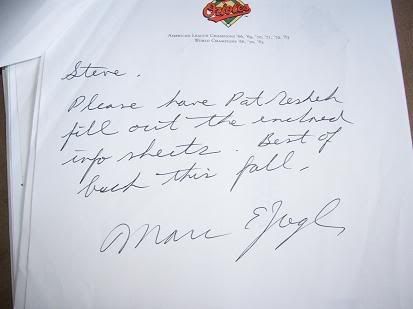 Orioles
AMERICAN LEAGUE CHAMPIONS '66, '69, '70, '71, '79, '83
WORLD CHAMPIONS '66, '70, '83
Steve.
Please have Pat
fill out the enclosed
info sheets. Best of
luck this fall.
Marc